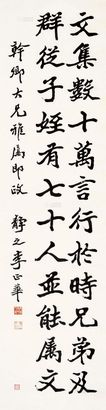 文集數十萬言行於時兄弟及
群從子姪有七十人並能属文
幹卿大兄雅属即政
静之李正華